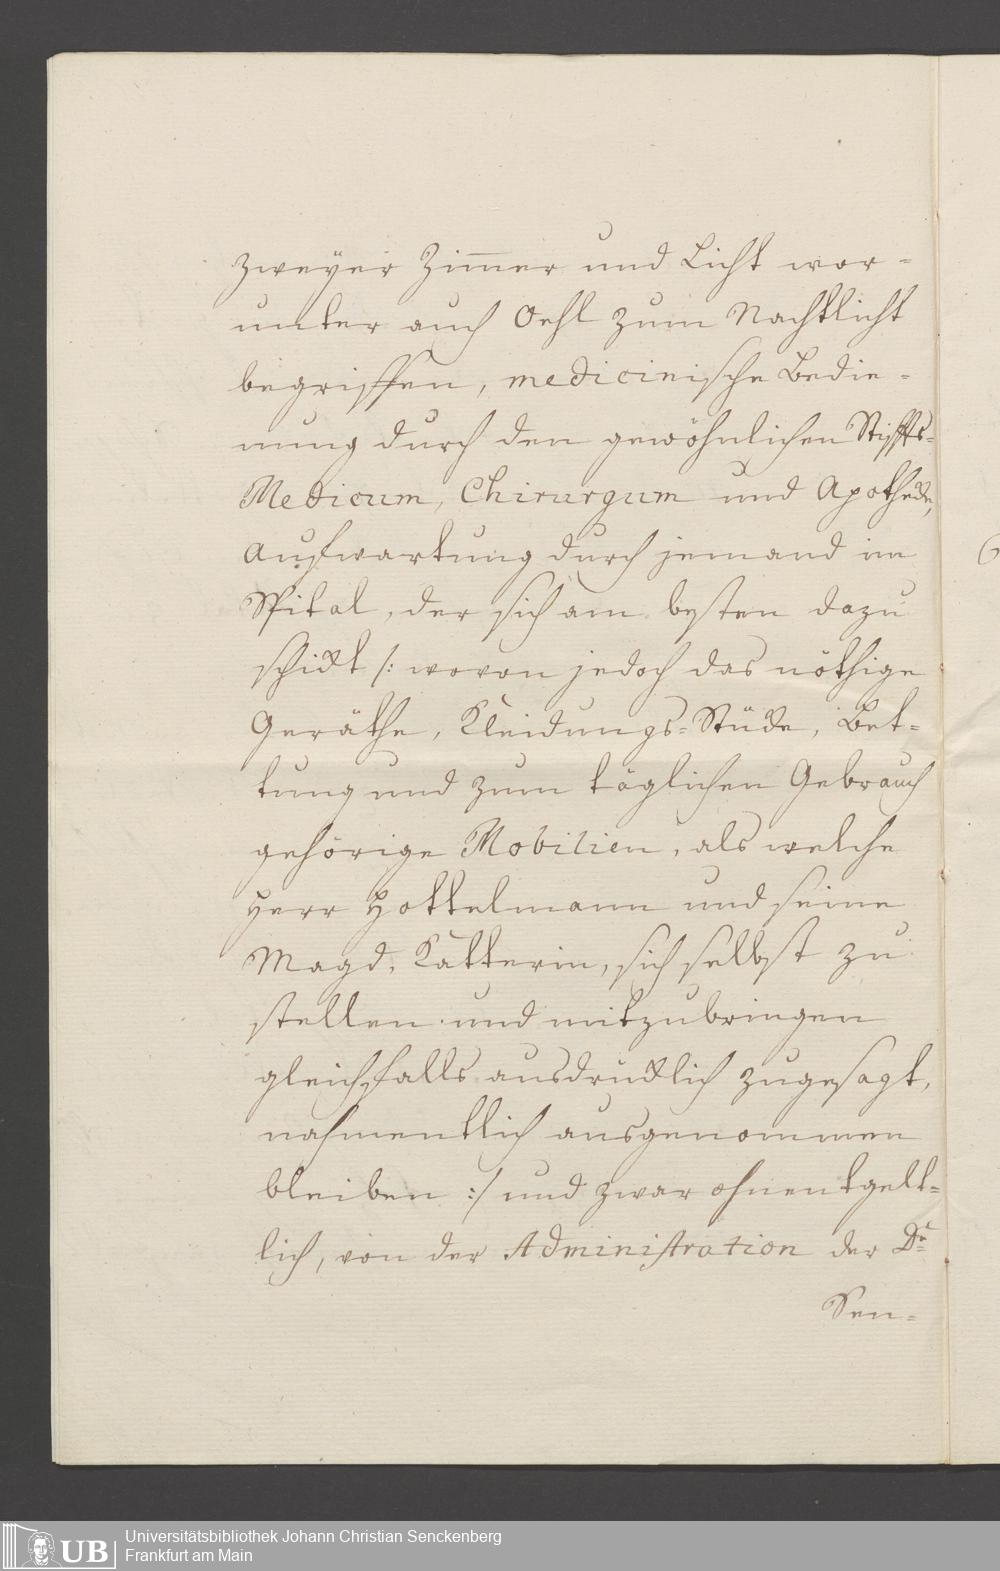 zweyer Zimmer und Licht wor-
unter auch Oehl zum Nachtlicht
begriffen, medicinische Bedie-
nung durch den gewöhnlichen Stiffts-
Medicum, Chirurgum und Apotheck,
Aufwartung durch jemand im
Spital, der sich am besten dazu
schickt /: wovon jedoch das nöthige
Geräthe, Kleidungs-Stücke, Bet-
tung und zum täglichen Gebrauch
gehörige Mobilien, als welche
Herr Hottelmann und seine
Magd, Katterin, sich selbst zu
stellen und mitzubringen
gleichfalls ausdrücklich zugesagt,
nahmentlich ausgenommen
bleiben :/ und zwar ohnentgelt-
lich, von der Administration der Dr.
Sen-
UB Universitätsbibliothek Johann Christian Senckenberg
Frankfurt am Main